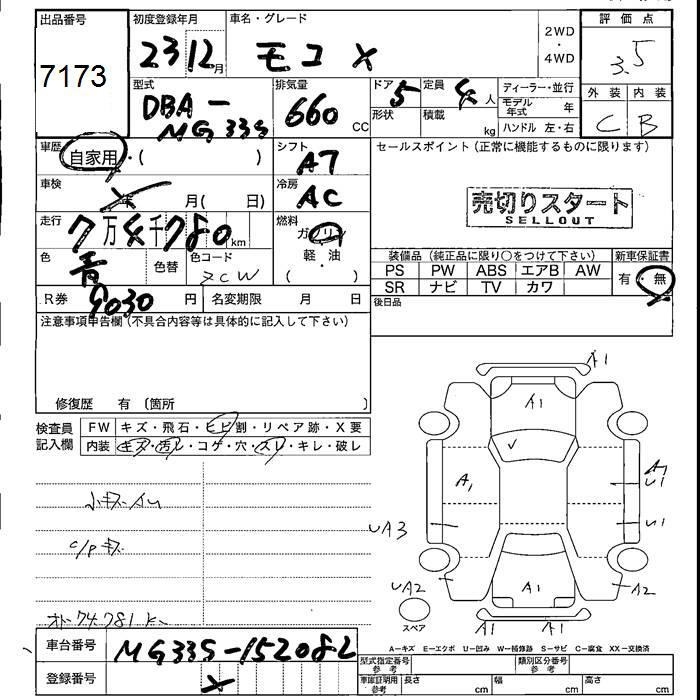 出品番号
7173
初度登録年月
23 12月
車名・グレード
モコ X
2WD
・
4WD
評価点
3.5
外装 内装
C B
型式
DBA-
MG33S
排気量
660 CC
ドア 5
形状
定員 4人
積載 kg
ディーラー・並行
モデル年式 年
ハンドル 左・右
車歴
自家用・( )
シフト
AT
セールスポイント(正常に機能するものに限ります)
売切りスタート
SELLOUT
車検
年 月( 日)
冷房
AC
走行
7万4千780km
燃料
ガソリン
(軽油・)
色
青
色替
色コード
ZCW
装備品(純正品に限り○をつけて下さい)
PS PW ABS エアB AW
SR ナビ TV カワ
新車保証書
有・無
R券 9030円
名変期限 月 日
後日品
注意事項申告欄(不具合内容等は具体的に記入して下さい)
修復歴 有 〔箇所 〕
検査員
記入欄
FW キズ・飛石・ヒビ割・リペア跡・X要
内装 キズ・汚レ・コゲ・穴・スレ・キレ・破レ
小キズ AU
C/Pキズ
オドー74.781K
A1
A1
A1
A1
U1
UA3
U1
UA2
A1
A2
スペア
A1
A1
A-キズ E-エクボ U-凹み W-補修跡 S-サビ C-腐食 XX-交換済
車台番号
MG33S-152082
登録番号
X
型式指定番号
参考
類別区分番号
参考
車庫証明用
参考
長さ cm
幅 cm
高さ cm